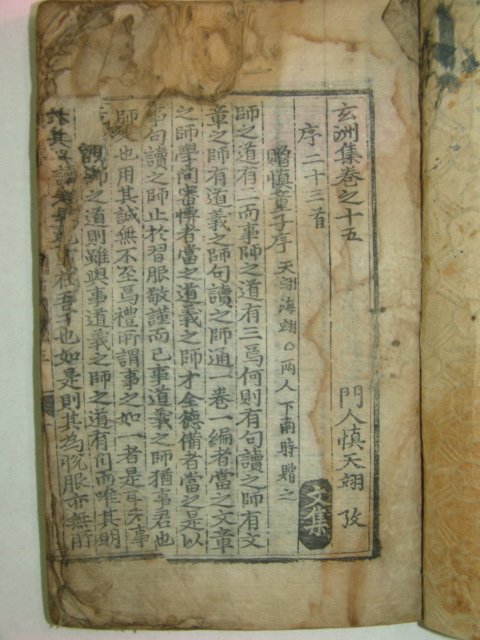 玄洲集卷之十五
門人愼天翊攷
序二十三首
文集
贈愼童子序 天翊海翊○兩人下南時贈之
師之道有二而事師之道有三爲何則有句讀之師有文
章之師有道義之師句讀之師通一卷一編者當之文章
之師學問富博者當之道義之師才全德備者當之是以
事句讀之師止於習服敬謹而已事道義之師猶事君也
師 也用其誠無不至爲禮所謂事之如一者是耳未事
師之道則雖與事道義之師之道有間而唯其明
在吾子也如是則其為悅服亦無所